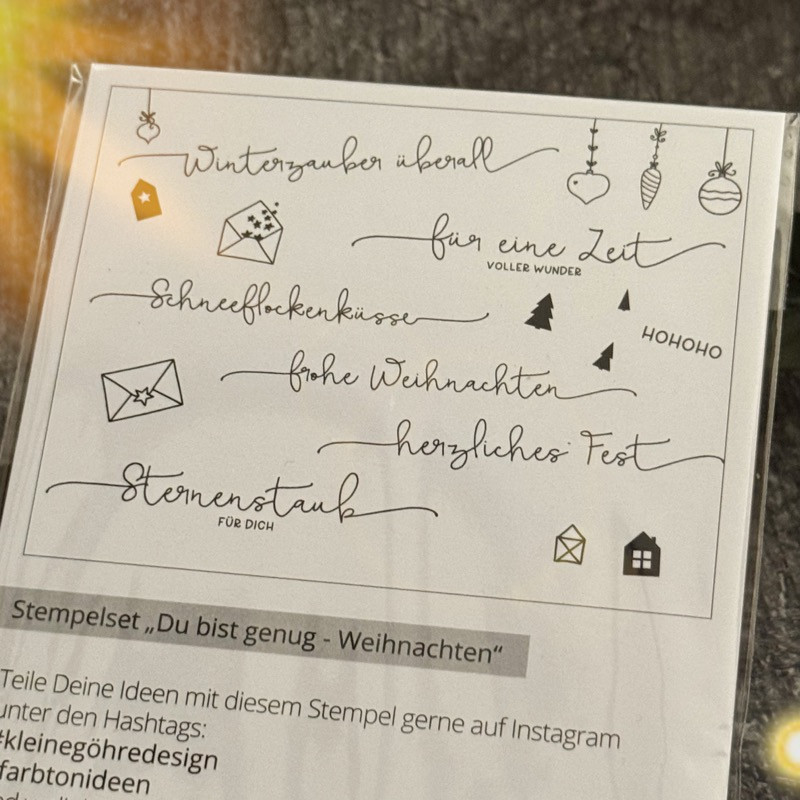 Winterzauber überall
für eine Zeit
VOLLER WUNDER
Schneeflockenküsse
HOHOHO
frohe Weihnachten
herzliches Fest
Sternenstaub
FÜR DICH
Stempelset „Du bist genug - Weihnachten“
Teile Deine Ideen mit diesem Stempel gerne auf Instagram
unter den Hashtags:
#kleinegöhredesign
farbtonideen